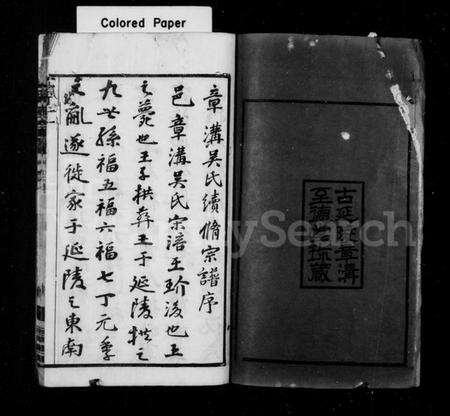 Colored Paper
章溝吳氏續脩宗譜序
邑章溝吳氏宗涪王玠後也王
之薨也王子拱葬王于延陵拱之
九世孫福五福六福七丁元季
亂遂徙家于延陵之東南
古延陵章溝
至德堂珍藏
MyChinaRoots Search